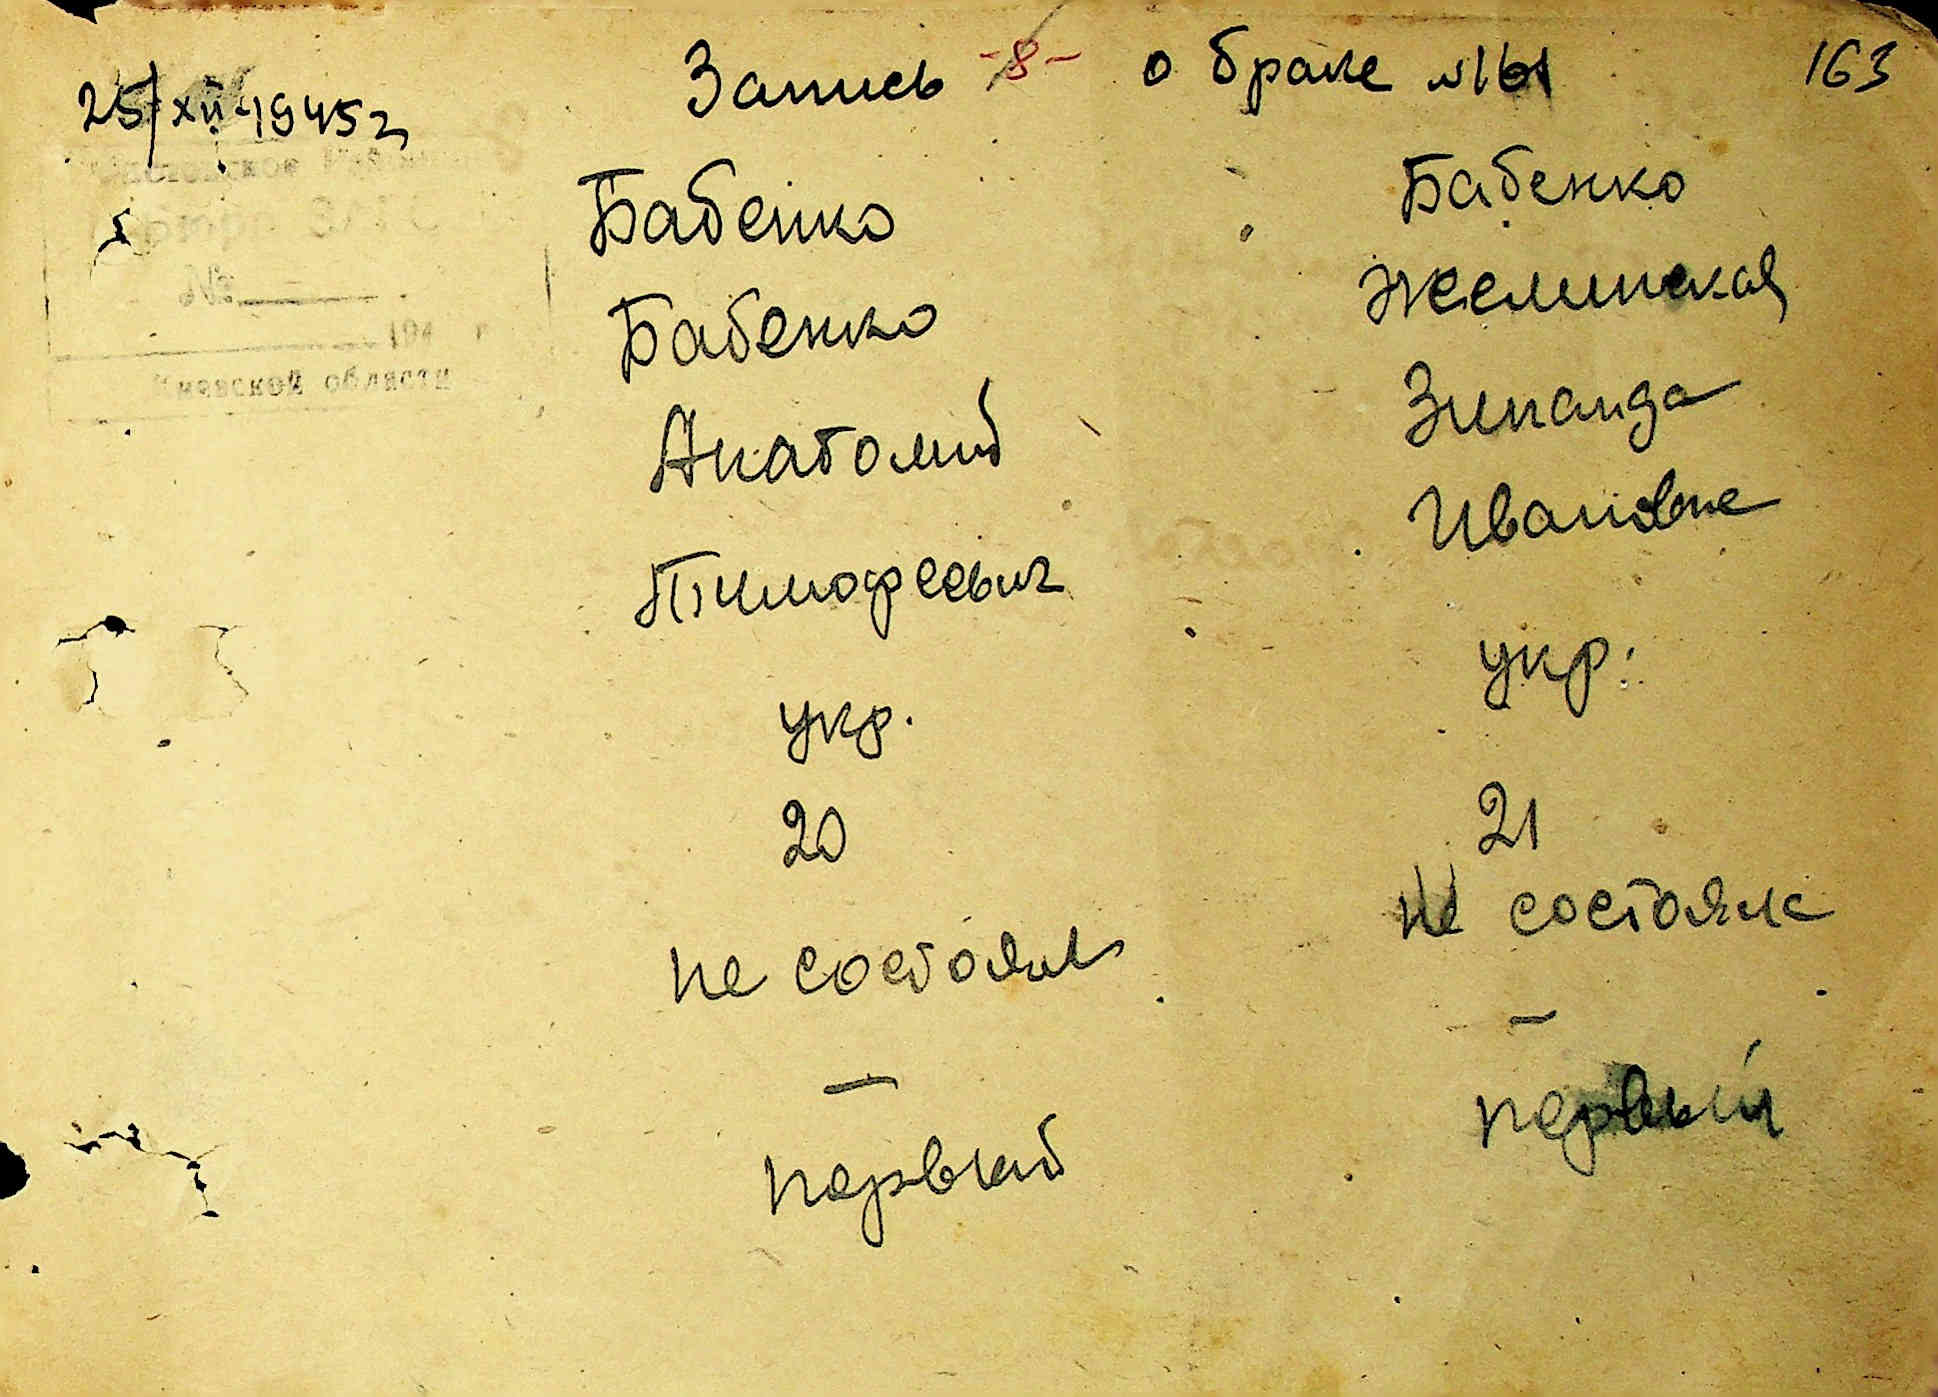 25/XII-1945г
Запись -8- о браке №161
163
Киевской области
№
194 г
Бабенко
Бабенко
Анатолий
Тимофеевич
укр.
20
не состоял
—
первый
Бабенко
Зинаида
Ивановне
укр.
21
не состояла
—
первый